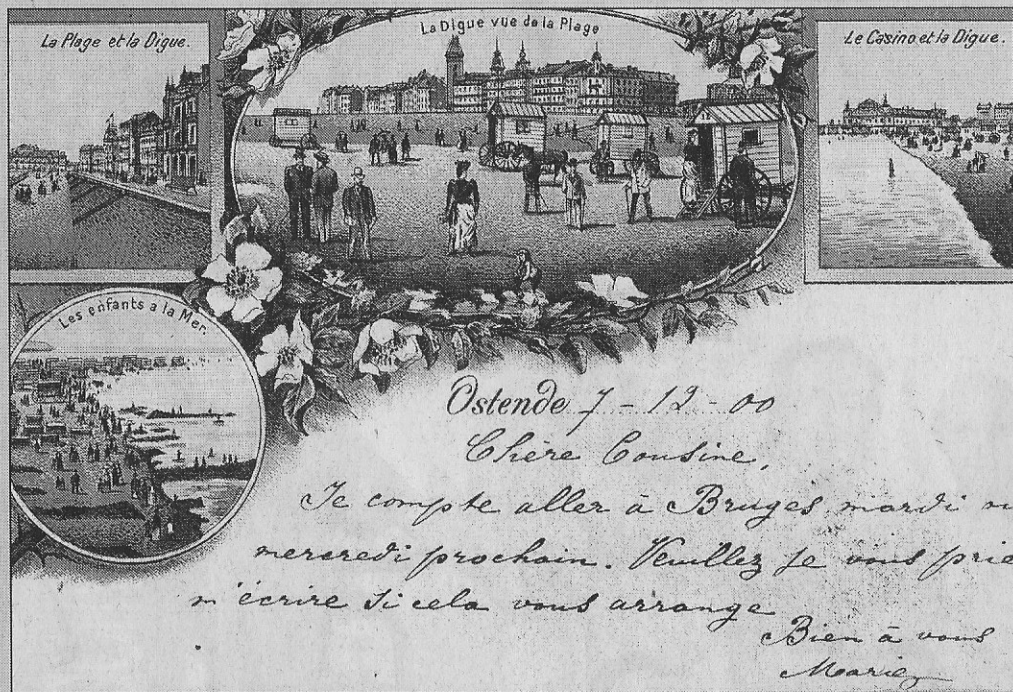 La Plage et la Digue.
La Digue vue de la Plage
Le Casino et la Digue.
Les enfants a la Mer.
Ostende 7 - 12 - 00
Chère Cousine,
Je compte aller à Bruges mardi
mercredi prochain. Veuillez je vous prie
m'écrire si cela vous arrange
Bien à vous
Marie